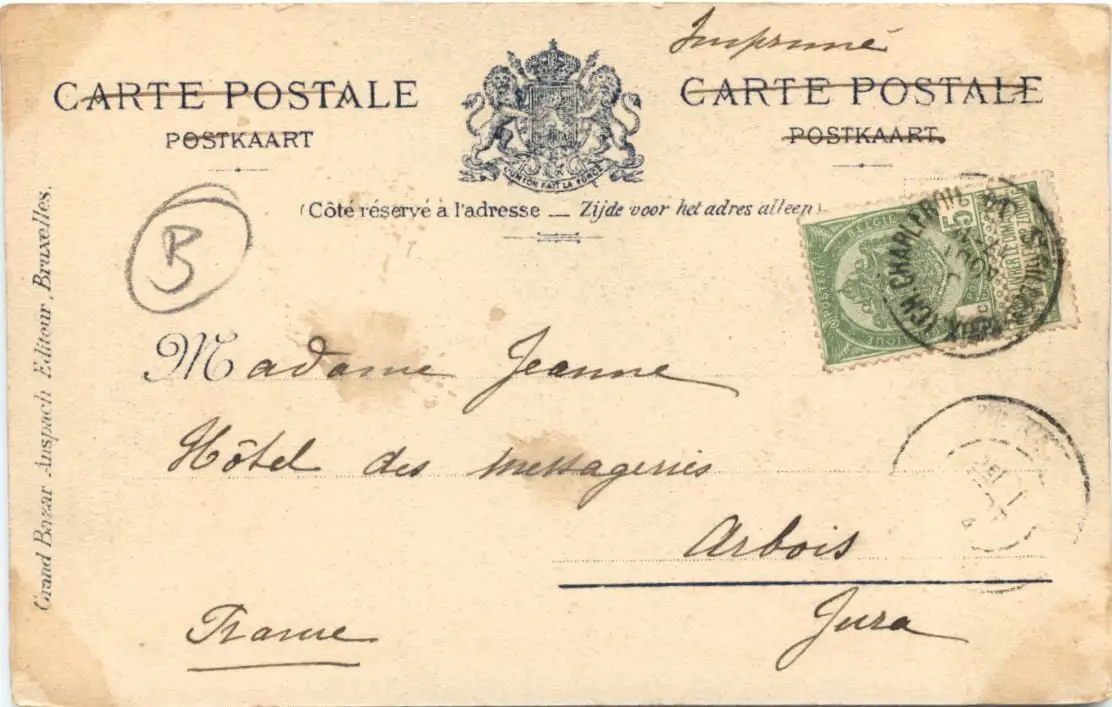 Imprimé
CARTE POSTALE
POSTKAART
CARTE POSTALE
POSTKAART.
L'UNION FAIT LA FORCE
(Côté réservé à l'adresse — Zijde voor het adres alleen)
B
Grand Bazar Anspach Editeur, Bruxelles.
5
BELGIQUE
BELGIE
POSTES
CHARLEROI
Madame Jeanne
Hôtel des messageries
Arbois
Jura
France